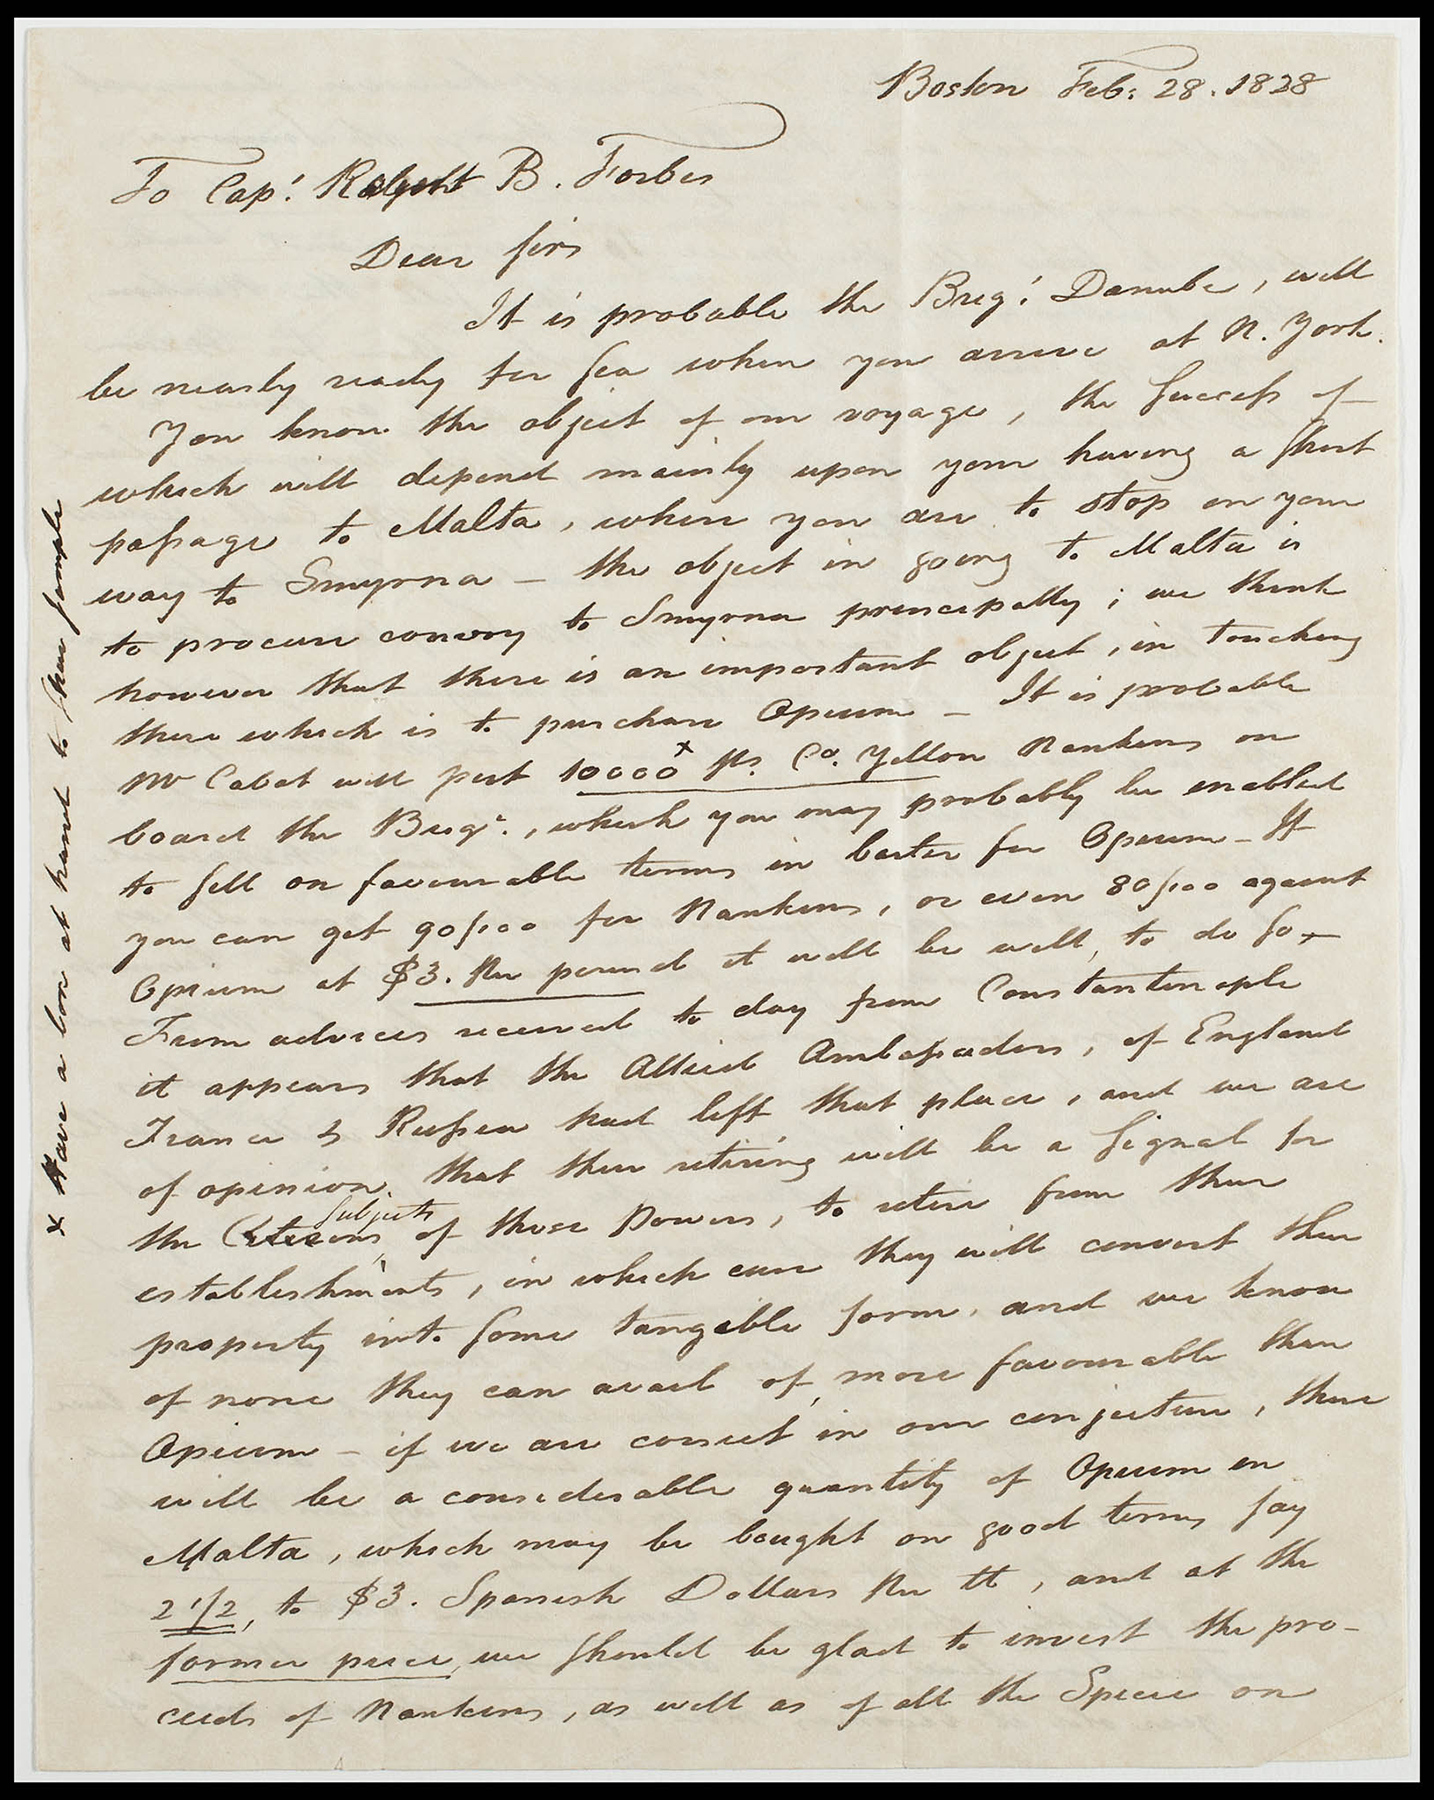 Boston Feb: 28. 1828
To Cap! Robert B. Forbes
Dear Sir,
It is probable the Brig! Danube, will
be nearly ready for Sea when you arrive at N. York.
You know the object of our voyage, the Success of
which will depend mainly upon your having a Short
passage to Malta, where you are to stop on your
way to Smyrna — the object in going to Malta is
to procure convoy to Smyrna principally; we think
however that there is an important object, in touching
there which is to purchase Opium — It is probable
Mr Cabot will put 10000 x ps. Co. Yellow Nankins on
board the Brig., which you may probably be enabled
to Sell on favourable terms in barter for Opium — If
you can get 90/100 for Nankins, or even 80/100 against
Opium at $3. Per pound it will be well, to do So —
From advices received to day from Constantinople
it appears that the Allied Ambassadors, of England
France & Russia had left that place, and we are
of opinion, that their retiring will be a Signal for
Subjects
the Citizens of these Powers, to retire from their
establishments, in which case they will convert their
property into Some tangible form, and we know
of none they can avail of, more favourable than
Opium — if we are correct in our conjecture, there
will be a considerable quantity of Opium in
Malta, which may be bought on good terms Say
2 1/2, to $3. Spanish Dollars Per lb, and at the
former price, we Should be glad to invest the pro-
ceeds of Nankins, as well as of all the Specie on
x Have a box at hand to Shew Sample